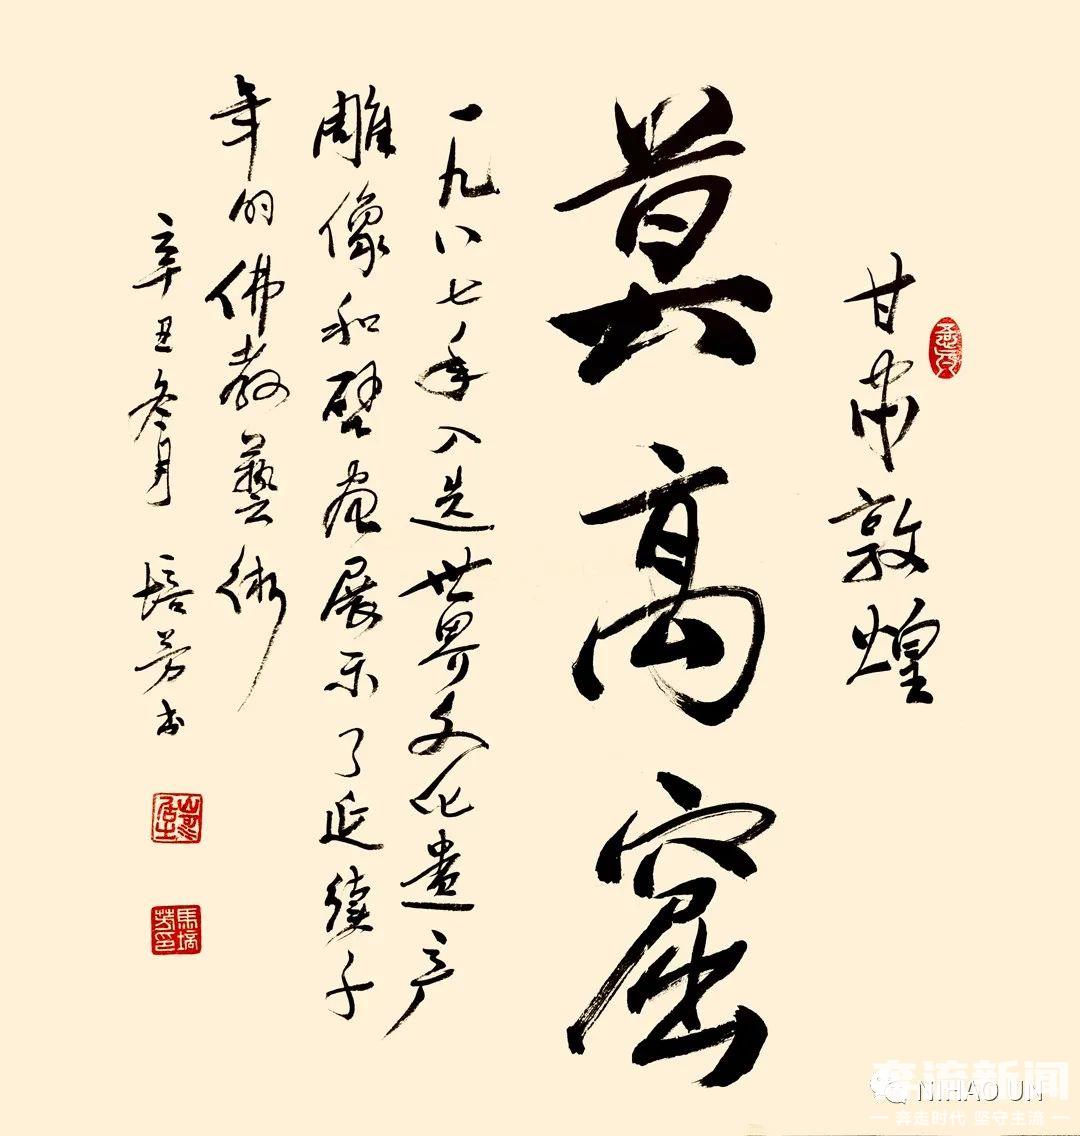 甘肃敦煌
莫高窟
一九八七年入选世界文化遗产
雕像和壁画展示了延续千
年的佛教藝術
辛丑冬月 培芳书
馬培芳印
奔流新闻
NIHAO UN
— 奔走时代 坚守主流 —